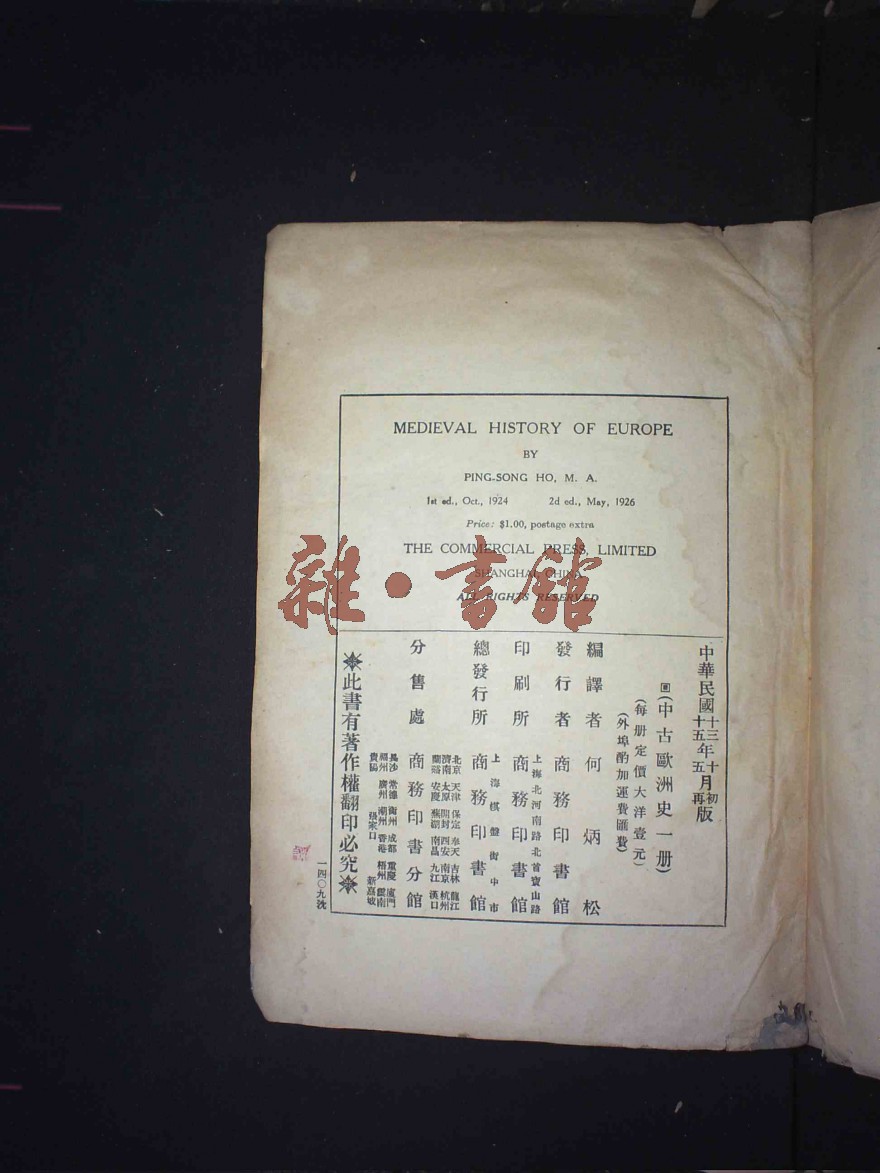 MEDIEVAL HISTORY OF EUROPE
BY
PING-SONG HO, M. A.
1st ed., Oct., 1924 2d ed., May, 1926
Price: $1.00, postage extra
THE COMMERCIAL PRESS, LIMITED
SHANGHAI, CHINA
ALL RIGHTS RESERVED
雜·書館
中華民國十三年十月初版
十五年五月再版
(中古歐洲史一册)
(每册定價大洋壹元)
(外埠酌加運費匯費)
編譯者 何炳松
發行者 商務印書館
上海北河南路北首寶山路
印刷所 商務印書館
上海棋盤街中市
總發行所 商務印書館
北京 天津 保定 奉天 吉林 龍江
濟南 太原 開封 西安 南京 杭州
蘭谿 安慶 蕪湖 南昌 九江 漢口
分售處 商務印書分館
長沙 常德 衡州 成都 重慶 廈門
福州 廣州 潮州 香港 梧州 雲南
貴陽 張家口 新嘉坡
此書有著作權翻印必究
一四〇九沈